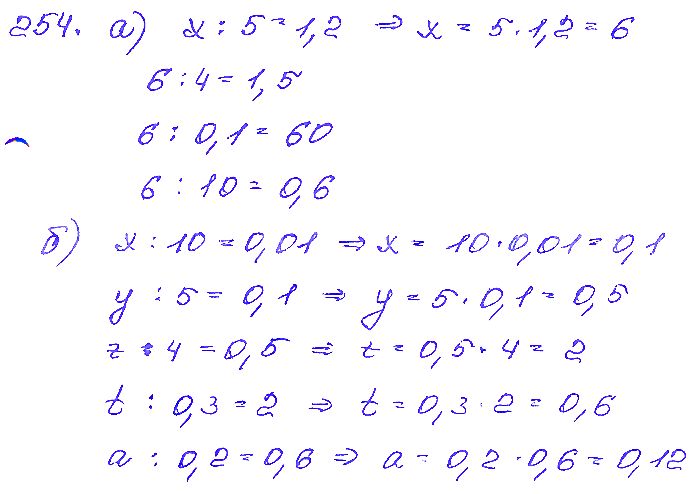 254. а) x : 5 = 1,2 ⇒ x = 5 · 1,2 = 6
6 : 4 = 1,5
6 : 0,1 = 60
6 : 10 = 0,6
б) x : 10 = 0,01 ⇒ x = 10 · 0,01 = 0,1
y : 5 = 0,1 ⇒ y = 5 · 0,1 = 0,5
z : 4 = 0,5 ⇒ z = 0,5 · 4 = 2
t : 0,3 = 2 ⇒ t = 0,3 · 2 = 0,6
a : 0,2 = 0,6 ⇒ a = 0,2 · 0,6 = 0,12